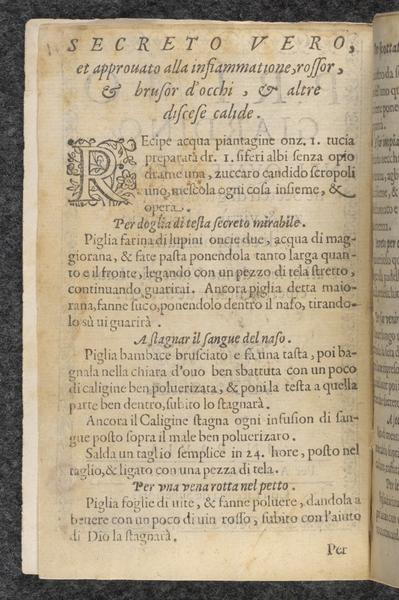 SECRETO VERO,
et approuato alla infiammatione, rossor,
& brusor d'occhi, & altre
discese calide.
REcipe acqua piantagine onz. 1. tucia
preparata dr. 1. siferi albi senza opio
drame una, zuccaro candido scropoli
uno, mescola ogni cosa insieme, &
opera.
Per doglia di testa secreto mirabile.
Piglia farina di lupini oncie due, acqua di mag-
giorana, & fate pasta ponendola tanto larga quan-
to e il fronte, legando con un pezzo di tela stretto,
continuando guarirai. Ancora piglia detta maio-
rana, fanne suco, ponendolo dentro il naso, tirando-
lo sù ui guarirà.
A stagnar il sangue del naso.
Piglia bambace brusciato e fa una tasta, poi ba-
gnala nella chiara d'ouo ben sbattuta con un poco
di caligine ben poluerizata, & poni la testa a quella
parte ben dentro, subito lo stagnarà.
Ancora il Caligine stagna ogni infusion di san-
gue posto sopra il male ben poluerizato.
Salda un taglio semplice in 24. hore, posto nel
taglio, & ligato con una pezza di tela.
Per vna vena rotta nel petto.
Piglia foglie di uite, & fanne poluere, dandola a
beuere con un poco di uin rosso, subito con l'aiuto
di Dio la stagnarà.
Per